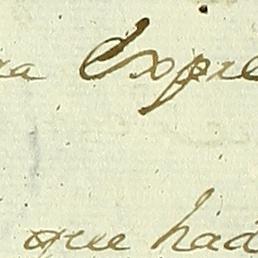 ra Expre
que had